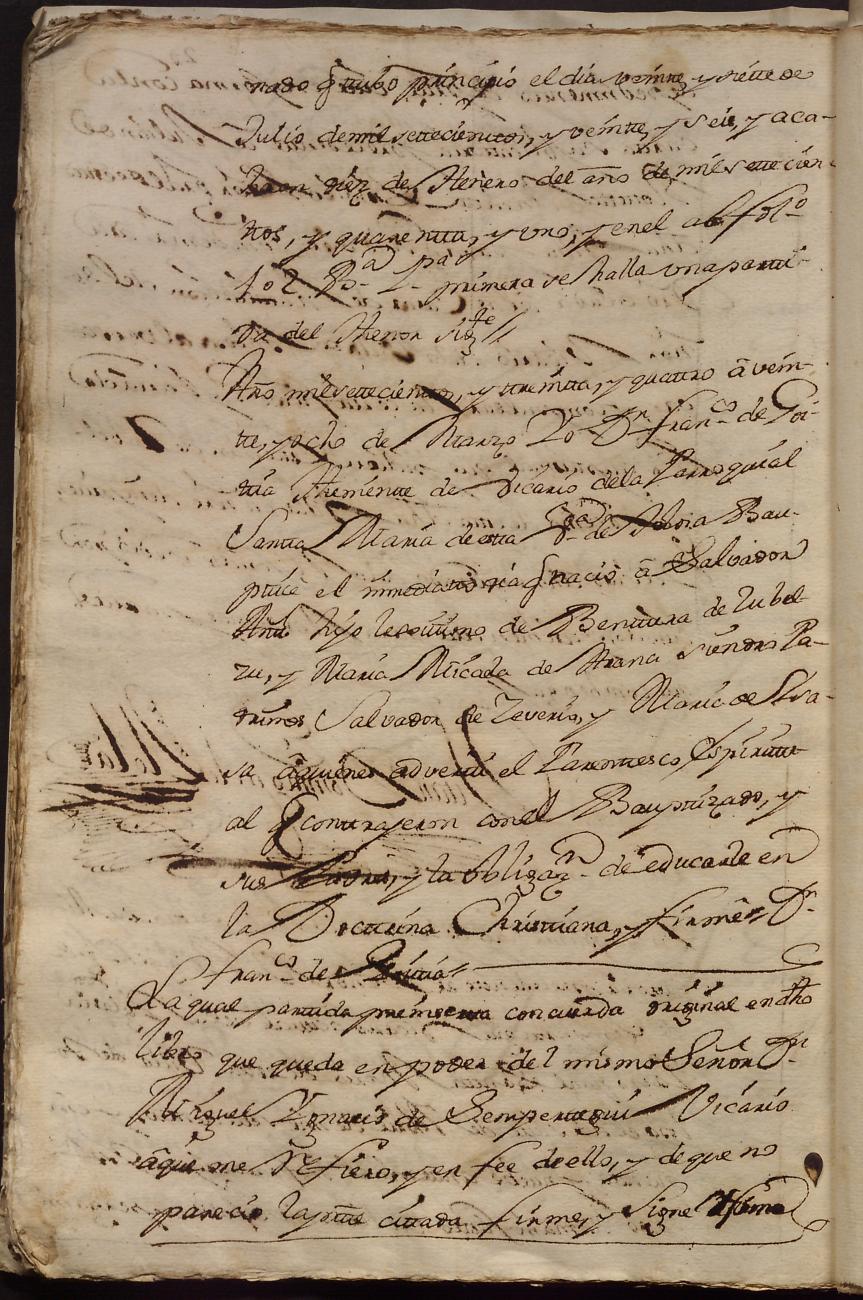 nado q tubo principio el dia veinte y siette de
Julio de mil settecientos, y veintte, y seis, y aca-
ba en diez de Henero del año de mil settecien-
tos, y quarentta, y uno, y en el al fol.º
102 B.ª pª primera se halla una parti-
da del thenor sigte//
Año mil settecientos, y treintta, y quattro â vein-
tte, y ocho de Marzo Yo Dn Franco de Goi-
ttia Theniente de Vicario de la Parroquial
Santta Maria de esta de Bau-
ptice el inmediatto dia q nacio â Salvador
hijo legitimo de Benttura de Zubel-
zu, y Maria Micaela de Arana siendo Pa-
drinos Salvador de Zeverio, y Maria de
â quienes advertti el Parenttesco Espiritu-
al q contrageron con el Bauptizado, y
sus Padres, y la obligazn de educarle en
la Docttrina Christtiana, y firmê// Dn
Franco de Goittia//
La qual parttida preinsertta concuerda original en dho
libro que queda en poder del mismo Señor Dn
Miguel Ygnacio de Sempertegui Vicario
âque me Refiero, y en fee de ello, y de que no
parecio la pte cittada firme, y signe